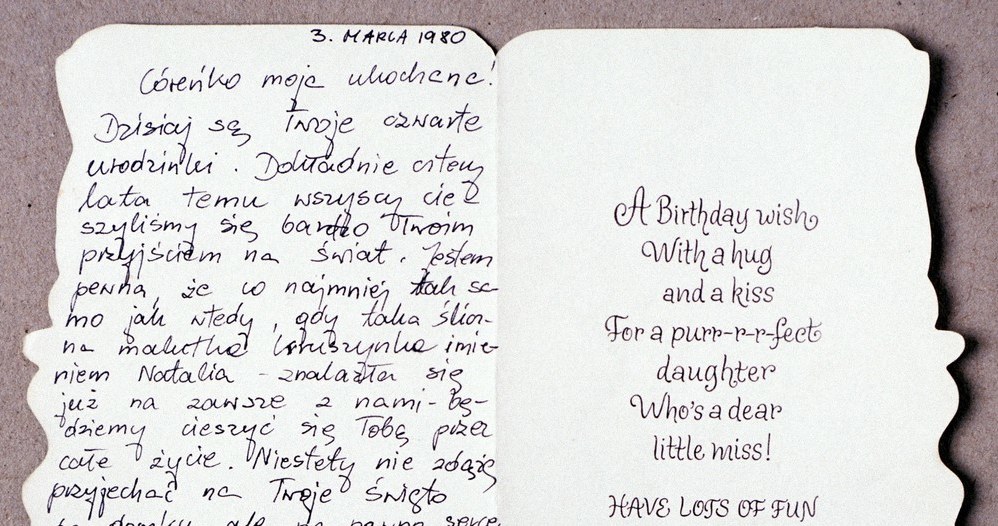 3. MARCA 1980
Córeńko moja ukochana!
Dzisiaj są Twoje czwarte
urodzinki. Dokładnie cztery
lata temu wszyscy cie-
szyliśmy się bardzo Twoim
przyjściem na świat. Jestem
pewna, że co najmniej tak sa-
mo jak wtedy, gdy taka ślicz-
na malutka kruszynka imie-
niem Natalia - znalazła się
już na zawsze z nami - bę-
dziemy cieszyć się Tobą przez
całe życie. Niestety nie zdążę
przyjechać na Twoje święto
ale na pewno
A Birthday wish
With a hug
and a kiss
For a purr-r-r-fect
daughter
Who's a dear
little miss!
HAVE LOTS OF FUN